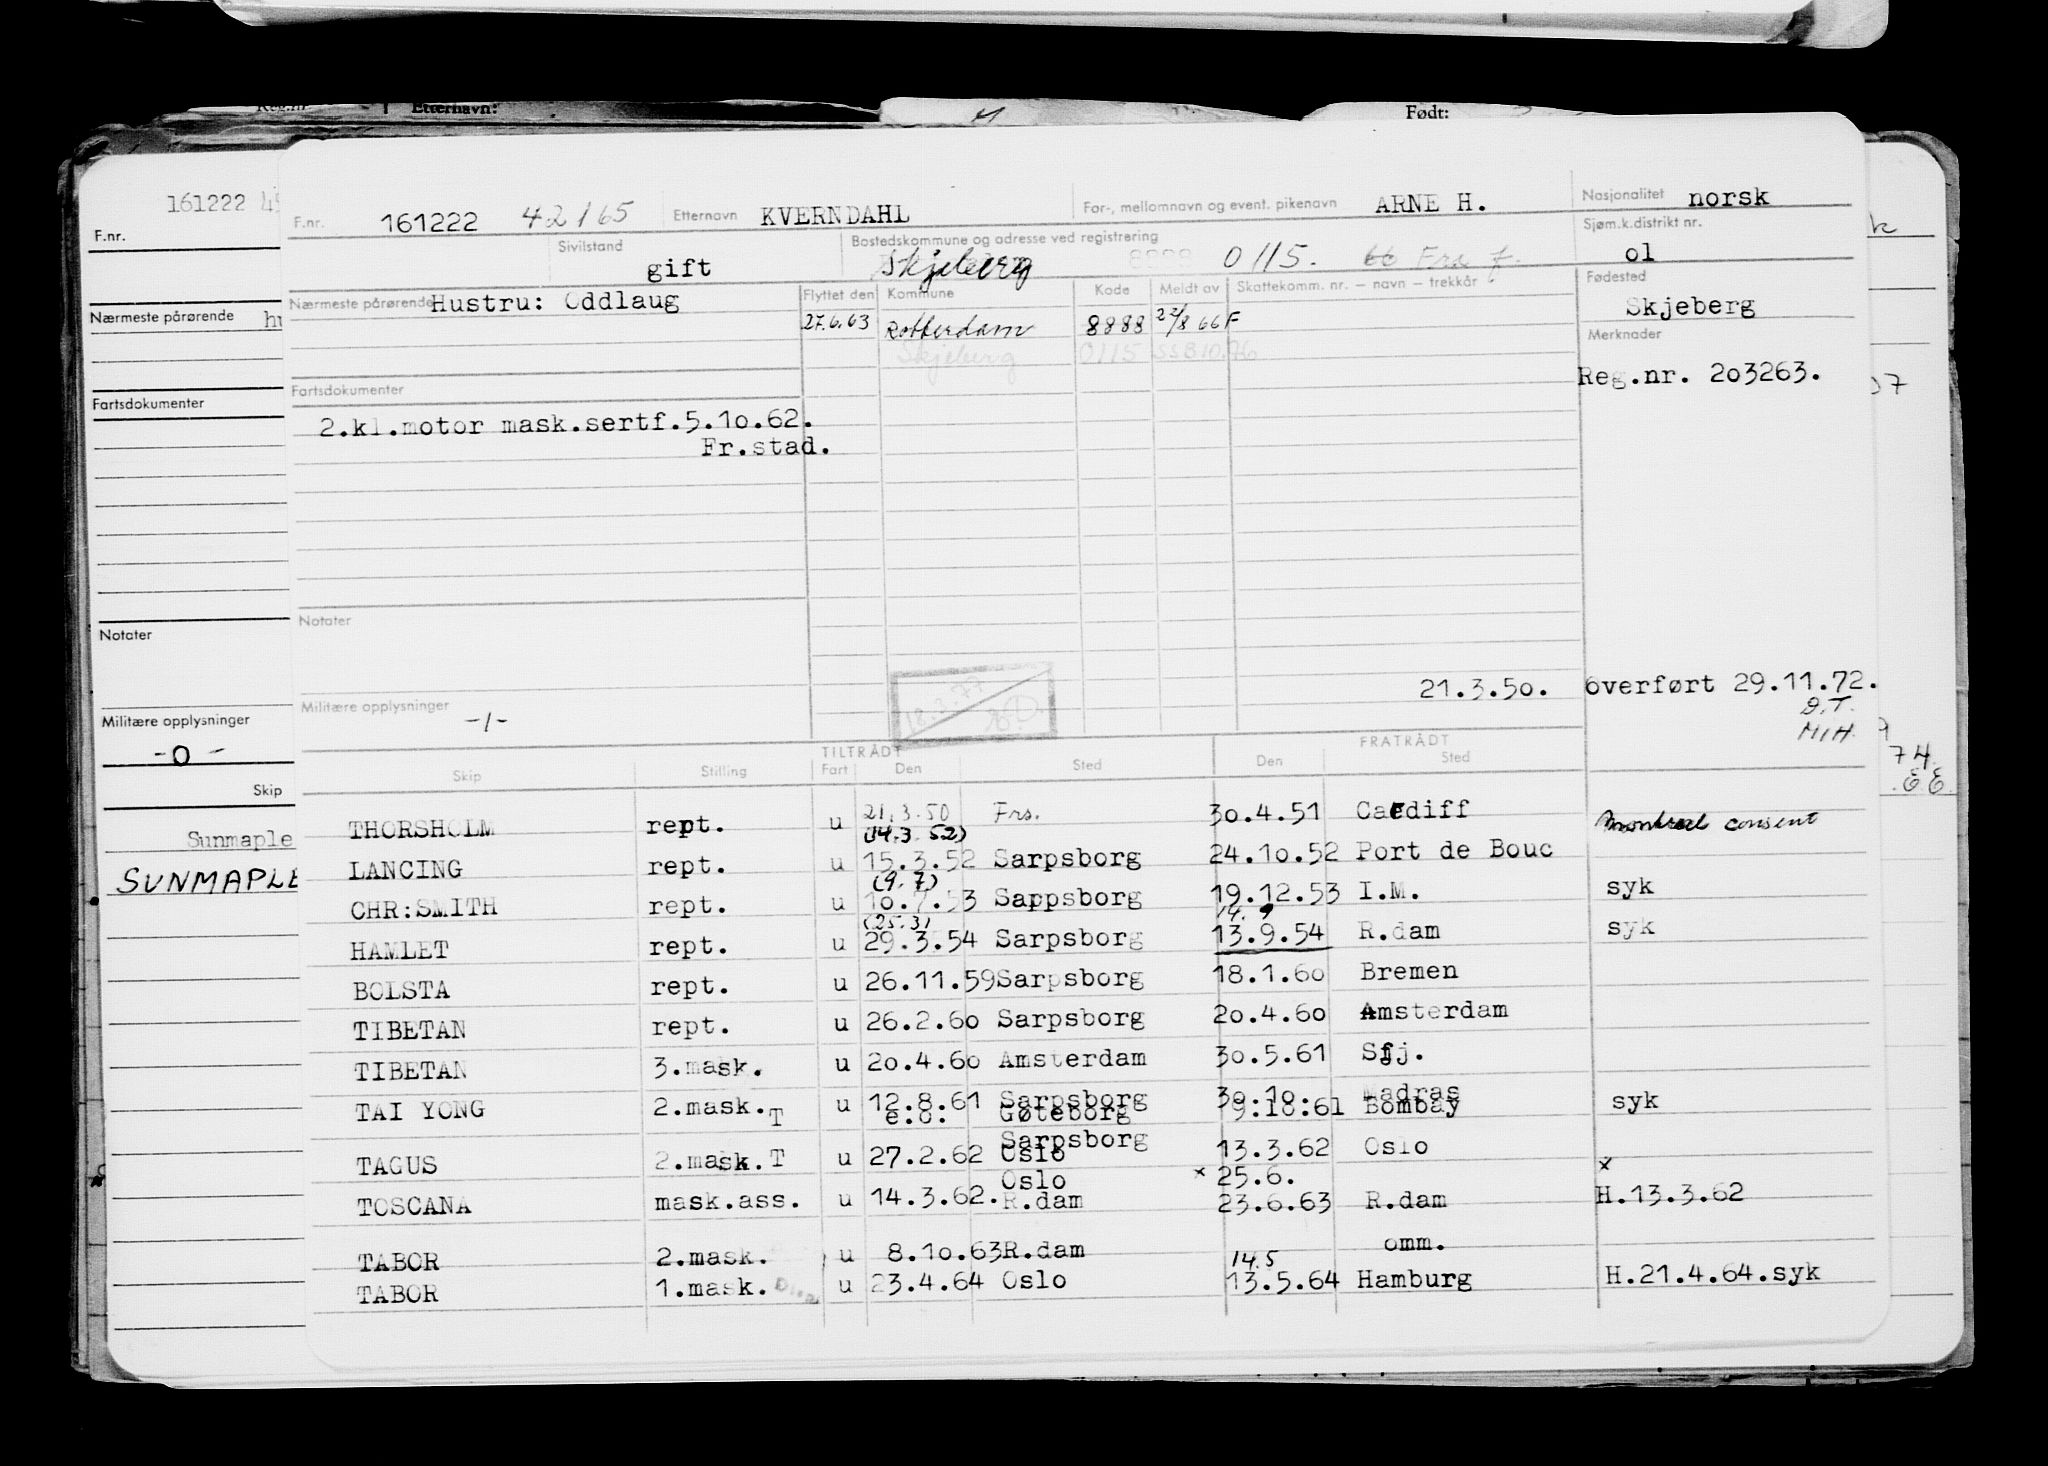 Reg.nr. Etternavn: Født:
161222
F.nr.
Nærmeste pårørende
Fartsdokumenter
Notater
Militære opplysninger
-0-
Skip
Sunmaple
SUNMAPLE
F.nr. 161222 42165 Etternavn KVERNDAHL For-, mellomnavn og event. pikenavn ARNE H. Nasjonalitet norsk
Sivilstand gift Bostedskommune og adresse ved registrering Skjeberg 0115. Sjøm.k.distrikt nr. 01
Nærmeste pårørende Hustru: Oddlaug Flyttet den Kommune Kode Meldt av Skattekomm. nr. — navn — trekkår Fødested
Skjeberg
27.6.63 Rotterdam 8888 22/8 66 F
Merknader
Skjeberg 0115 SSB10.76
Reg.nr. 203263.
Fartsdokumenter
2.kl.motor mask.sertf.5.10.62.
Fr.stad.
Notater
21.3.50. Overført 29.11.72.
Militære opplysninger -/-
18.3.77
D.T.
M/H.
74.
E E.
TILTRÅDT FRATRÅDT
Skip Stilling Fart Den Sted Den Sted
THORSHOLM rept. u 21.3.50 Frs. 30.4.51 Cardiff consent
(14.3.52)
LANCING rept. u 15.3.52 Sarpsborg 24.10.52 Port de Bouc
(9.7)
CHR:SMITH rept. u 10.7.53 Sappsborg 19.12.53 I.M. syk
(25.3) 14.9
HAMLET rept. u 29.3.54 Sarpsborg 13.9.54 R.dam syk
BOLSTA rept. u 26.11.59 Sarpsborg 18.1.60 Bremen
TIBETAN rept. u 26.2.60 Sarpsborg 20.4.60 Amsterdam
TIBETAN 3.mask. u 20.4.60 Amsterdam 30.5.61 Sfj.
TAI YONG 2.mask.T u 12.8.61 Sarpsborg 30.10. Madras syk
e.o. Gøteborg 9.10.61 Bombay
Sarpsborg
TAGUS 2.mask.T u 27.2.62 Oslo 13.3.62 Oslo
Oslo x 25.6. x
TOSCANA mask.ass. u 14.3.62. R.dam 23.6.63 R.dam H.13.3.62
TABOR 2.mask. u 8.10.63 R.dam omm.
14.5
TABOR 1.mask. u 23.4.64 Oslo 13.5.64 Hamburg H.21.4.64.syk